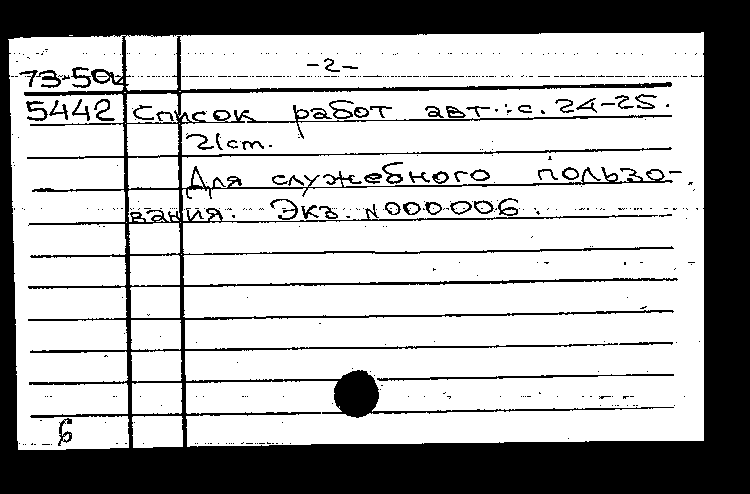 -2-
73-50и
5442 Список работ авт.: с. 24-25.
21 ст.
Для служебного пользо-
вания. Экз. N000006.
6